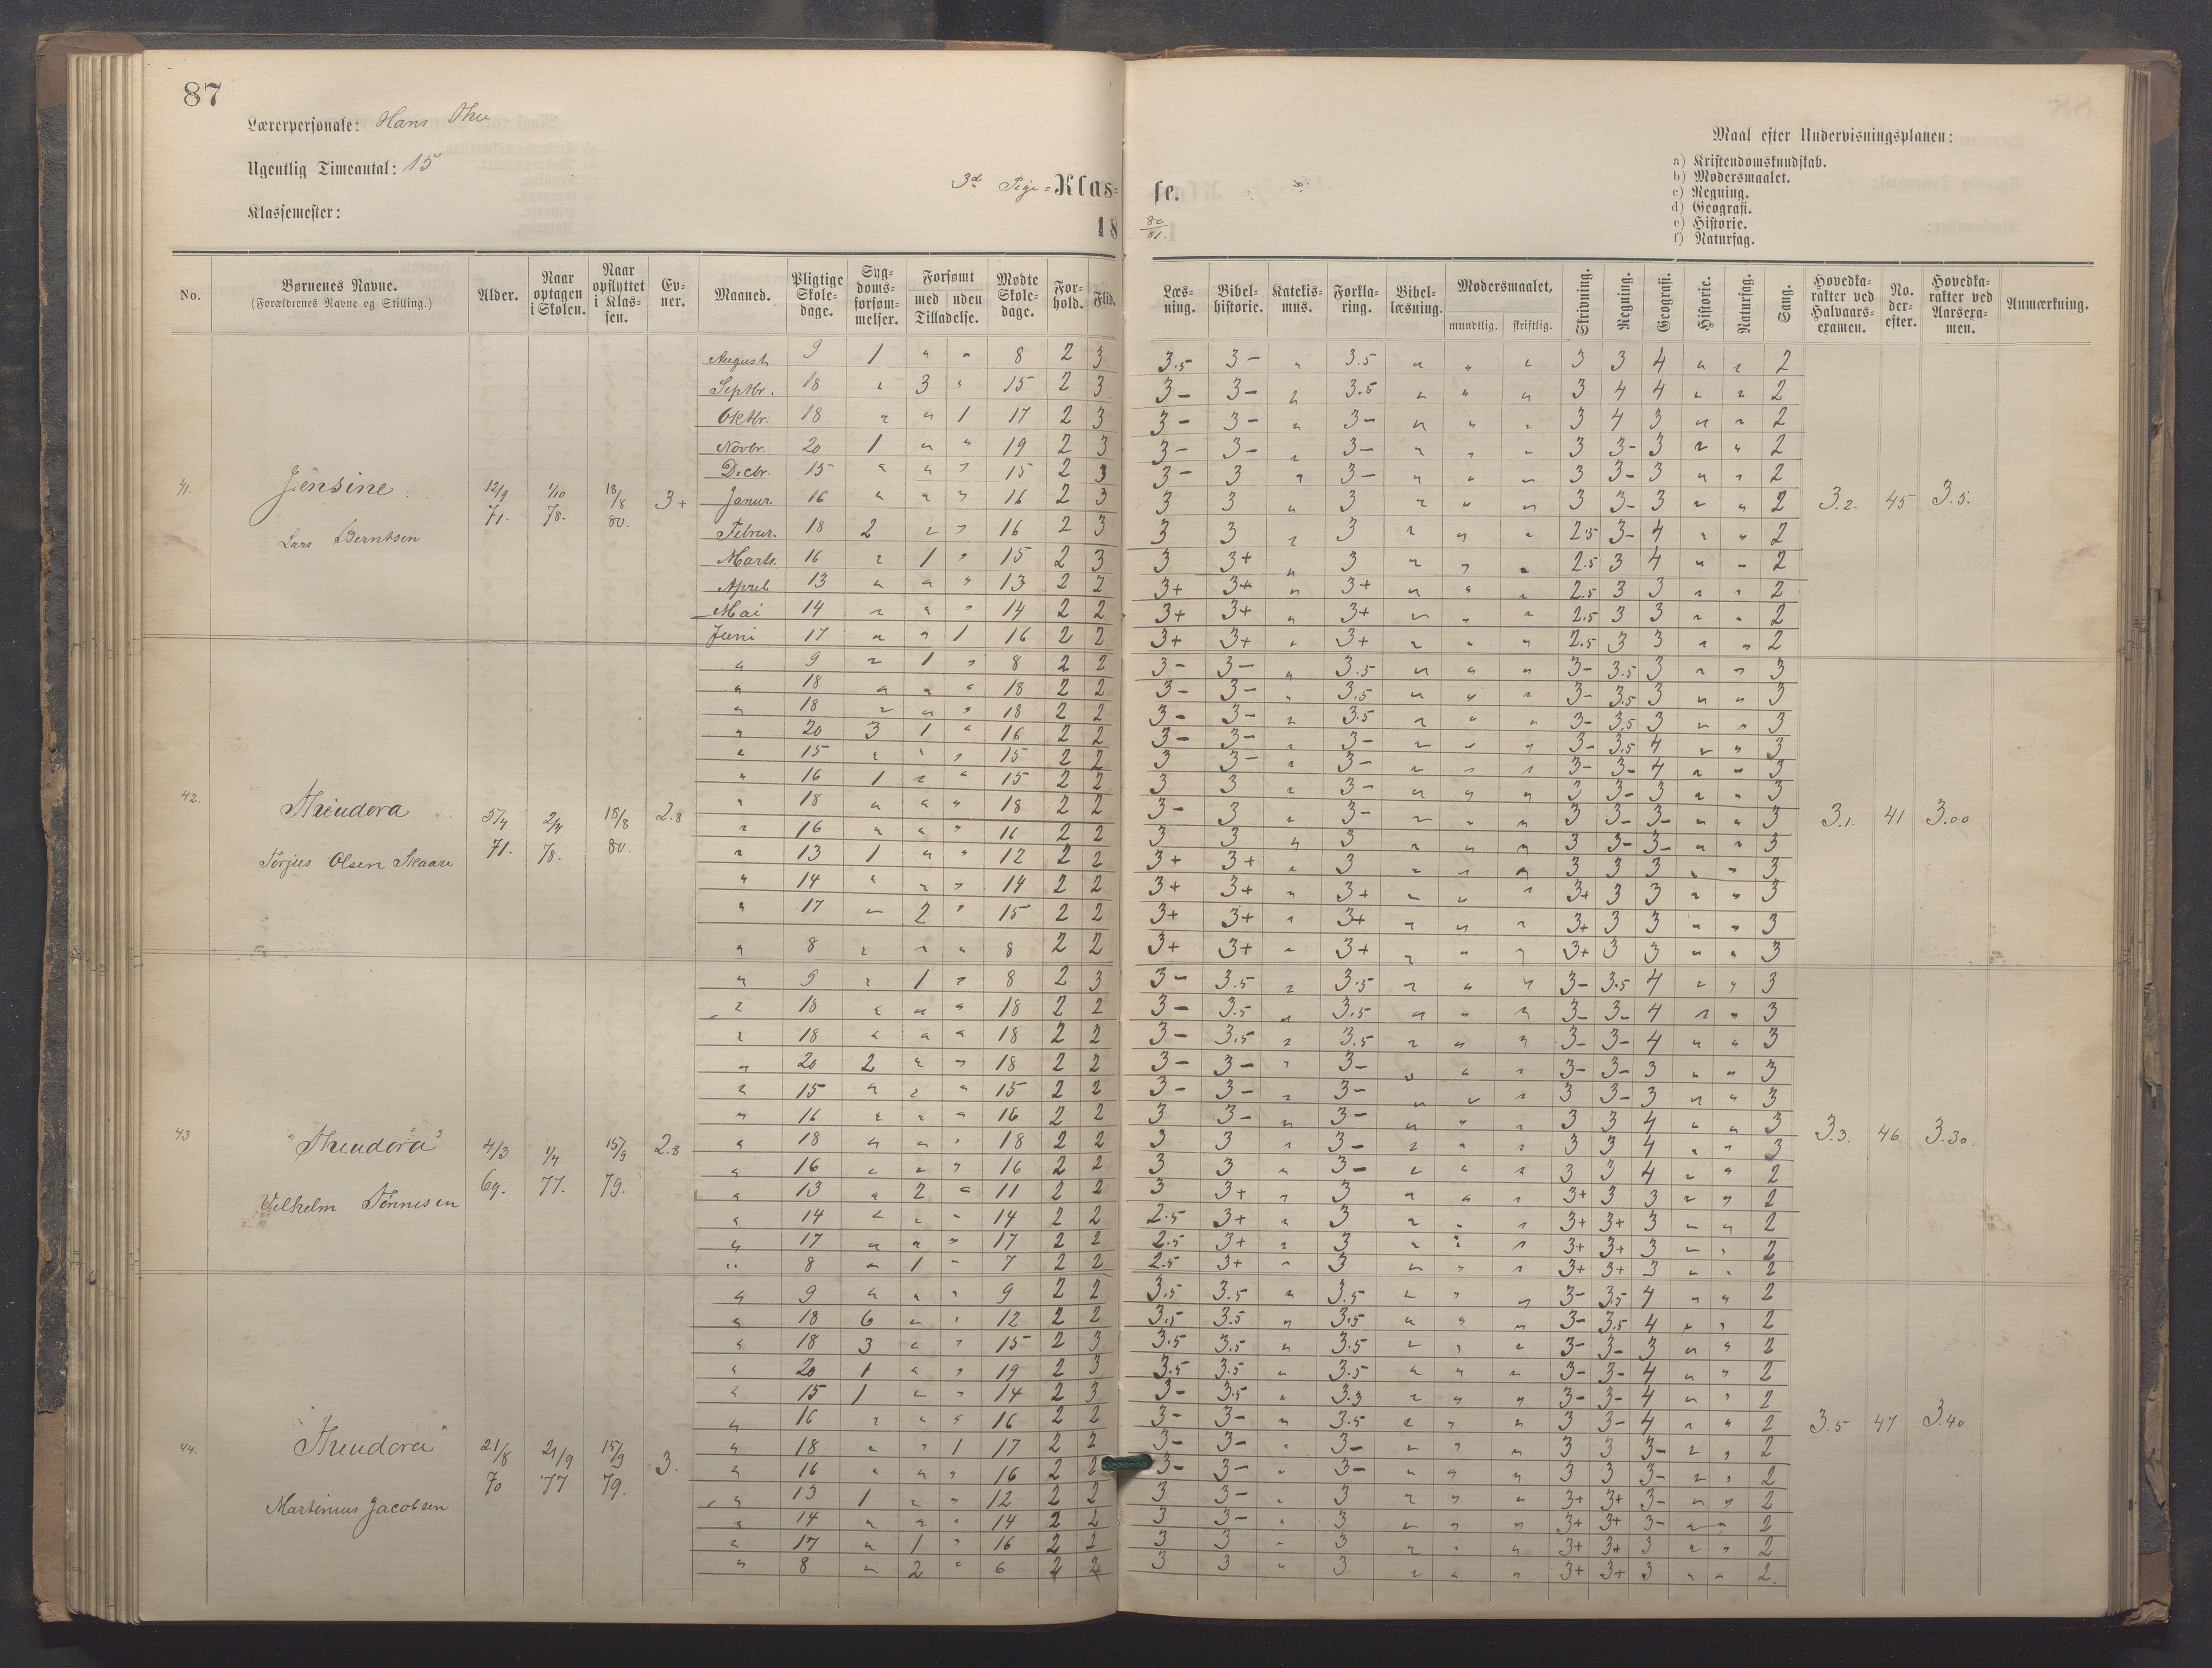 87
Lærerpersonale: Hans Thu
Ugentlig Timeantal: 15
Klassemester:
3d Pige= Klas=se.
18 80/81.
Maal efter Undervisningsplanen:
a) Kristendomskundskab.
b) Modersmaalet.
c) Regning.
d) Geografi.
e) Historie.
f) Naturfag.
No. Børnenes Navne. (Forældrenes Navne og Stilling.) Alder. Naar optagen i Skolen. Naar opflyttet i Klassen. Evner. Maaned. Pligtige Skoledage. Sygdomsforsømmelser. Forsømt med uden Tilladelse. Mødte Skoledage. Forhold. Flid. Læsning. Bibelhistorie. Katekismus. Forklaring. Bibellæsning. Modersmaalet, mundtlig. skriftlig. Skrivning. Regning. Geografi. Historie. Naturfag. Sang. Hovedkarakter ved Halvaarsexamen. No. derefter. Hovedkarakter ved Aarsexamen. Anmærkning.
August 9 1 " " 8 2 3 3.5 3- " 3.5 " " " 3 3 4 " " 2
Septbr. 18 " 3 " 15 2 3 3- 3- " 3.5 " " " 3 4 4 " " 2
Oktbr. 18 " " 1 17 2 3 3- 3- " 3- " " " 3 4 3 " " 2
Novbr. 20 1 " " 19 2 3 3- 3- " 3- " " " 3 3- 3 " " 2
Decbr. 15 " " " 15 2 3 3- 3 " 3- " " " 3 3- 3 " " 2
41. Jensine 12/9 71. 1/10 78. 18/8 80. 3+ Janur. 16 " " " 16 2 3 3 3 " 3 " " " 3 3- 3 " " 2 3.2. 45 3.5.
Lars Berntsen
Februr. 18 2 " " 16 2 3 3 3 " 3 " " " 2.5 3- 4 " " 2
Marts. 16 " 1 " 15 2 3 3 3+ " 3 " " " 2.5 3 4 " " 2
April 13 " " " 13 2 2 3+ 3+ " 3+ " " " 2.5 3 3 " " 2
Mai 14 " " " 14 2 2 3+ 3+ " 3+ " " " 2.5 3 3 " " 2
Juni 17 " " 1 16 2 2 3+ 3+ " 3+ " " " 2.5 3 3 " " 2
" 9 " 1 " 8 2 2 3- 3- " 3.5 " " " 3- 3.5 3 " " 3
" 18 " " " 18 2 2 3- 3- " 3.5 " " " 3- 3.5 3 " " 3
" 18 " " " 18 2 2 3- 3- " 3.5 " " " 3- 3.5 3 " " 3
" 20 3 1 " 16 2 2 3- 3- " 3- " " " 3- 3.5 4 " " 3
" 15 " " " 15 2 2 3 3- " 3- " " " 3- 3- 4 " " 3
" 16 1 " " 15 2 2 3 3 " 3- " " " 3 3- 3 " " 3
42. Theodora 5/4 71. 2/4 78. 18/8 80. 2.8 " 18 " " " 18 2 2 3- 3 " 3- " " " 3 3- 3- " " 3 3.1. 41 3.00
Torjus Olsen Skaare
" 16 " " " 16 2 2 3 3 " 3 " " " 3 3- 3- " " 3
" 13 1 " " 12 2 2 3+ 3+ " 3 " " " 3 3 3 " " 3
" 14 " " " 14 2 2 3+ 3+ " 3+ " " " 3+ 3 3 " " 3
" 17 " 2 " 15 2 2 3+ 3+ " 3+ " " " 3+ 3 3 " " 3
" 8 " " " 8 2 2 3+ 3+ " 3+ " " " 3+ 3 3 " " 3
" 9 " 1 " 8 2 3 3- 3.5 " 3.5 " " " 3- 3.5 4 " " 3
" 18 " " " 18 2 2 3- 3.5 " 3.5 " " " 3- 3- 4 " " 3
" 18 " " " 18 2 2 3- 3.5 " 3.5 " " " 3- 3- 4 " " 3
" 20 2 " " 18 2 2 3- 3- " 3- " " " 3- 3- 3 " " 3
" 15 " " " 15 2 2 3- 3- " 3- " " " 3 3- 3 " " 3
" 16 " " " 16 2 2 3 3- " 3- " " " 3 3 4 " " 3
43 "Theodora" 4/3 69. 1/4 77. 15/9 79. 2.8 " 18 " " " 18 2 2 3 3 " 3- " " " 3 3 4 " " 3 3.3. 46 3.30.
Vilhelm Tønnesen
" 16 " " " 16 2 2 3 3 " 3- " " " 3 3 4 " " 2
" 13 " 2 " 11 2 2 3 3+ " 3 " " " 3+ 3 3 " " 2
" 14 " " " 14 2 2 2.5 3+ " 3 " " " 3+ 3+ 3 " " 2
" 17 " " " 17 2 2 2.5 3+ " 3 " " " 3+ 3+ 3 " " 2
" 8 " 1 " 7 2 2 2.5 3+ " 3 " " " 3+ 3+ 3 " " 2
" 9 " " " 9 2 2 3.5 3.5 " 3.5 " " " 3- 3.5 4 " " 2
" 18 6 " " 12 2 2 3.5 3.5 " 3.5 " " " 3- 3.5 4 " " 2
" 18 3 " " 15 2 3 3.5 3.5 " 3.5 " " " 3- 3- 3 " " 2
" 20 1 " " 19 2 3 3.5 3.5 " 3.5 " " " 3- 3- 4 " " 2
" 15 1 " " 14 2 3 3- 3.5 " 3.3 " " " 3- 3- 4 " " 2
" 16 " " " 16 2 2 3- 3- " 3.5 " " " 3 3- 4 " " 2
44. "Theodora" 21/8 70 21/9 77 15/9 79. 3. " 18 " " 1 17 2 2 3- 3- " 3- " " " 3 3 3- " " 2 3.5 47 3.40
Martinius Jacobsen
" 16 " " " 16 2 2 3- 3- " 3- " " " 3 3 3- " " 2
" 13 1 " " 12 2 2 3 3- " 3 " " " 3+ 3+ 3- " " 2
" 14 " " " 14 2 2 3 3- " 3 " " " 3+ 3+ 3- " " 2
" 17 " 1 " 16 2 2 3 3 " 3 " " " 3+ 3+ 3 " " 2
" 8 " 2 " 6 2 2 3 3 " 3 " " " 3+ 3+ 3 " " 2.